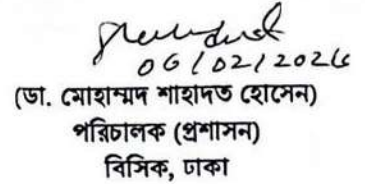 06/02/2026
(ডা. মোহাম্মদ শাহাদত হোসেন)
পরিচালক (প্রশাসন)
বিসিক, ঢাকা